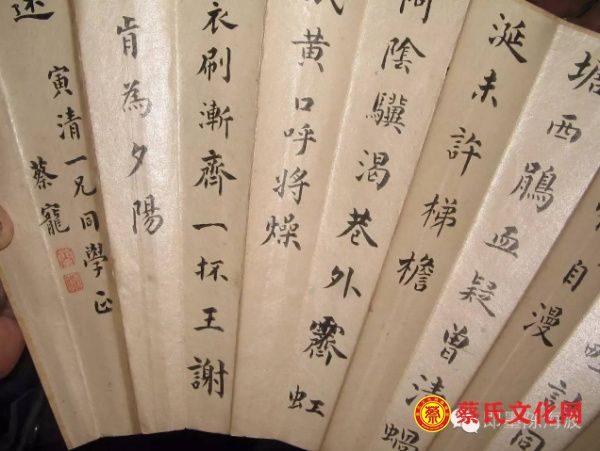 自漫
塘西鵑血疑曾清蝸
涎未許梯檐
陰驥渴巷外霽虹
黃口呼將燥
衣刷漸齊一抔王謝
肯為夕陽
寅清一兄同學正
蔡寵
蔡氏文化网